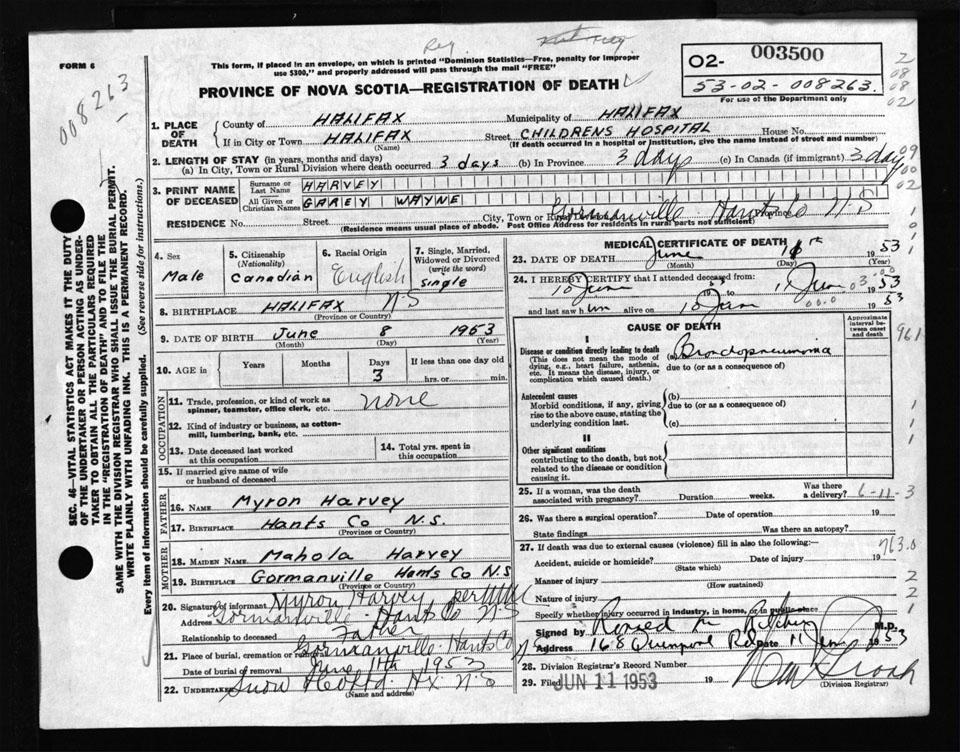 Reg.
FORM 6
This form, if placed in an envelope, on which is printed "Dominion Statistics—Free, penalty for improper
use $300," and properly addressed will pass through the mail "FREE"
PROVINCE OF NOVA SCOTIA—REGISTRATION OF DEATH
02- 003500
53-02-008263.
For use of the Department only
008263
2
08
08
02
1. PLACE OF DEATH
County of HALIFAX Municipality of HALIFAX
If in City or Town HALIFAX Street CHILDRENS HOSPITAL House No.
(Name) (If death occurred in a hospital or institution, give the name instead of street and number)
2. LENGTH OF STAY (in years, months and days)
(a) In City, Town or Rural Division where death occurred 3 days (b) In Province 3 days (c) In Canada (if immigrant) 3 days
09
00
02
3. PRINT NAME OF DECEASED
Surname or Last Name HARVEY
All Given or Christian Names GAREY WAYNE
RESIDENCE No. Street City, Town or Rural Division Gormanville Hants Co Province N-S
(Residence means usual place of abode. Post Office Address for residents in rural parts not sufficient)
4. Sex
Male
5. Citizenship
(Nationality)
Canadian
6. Racial Origin
English
7. Single, Married,
Widowed or Divorced
(write the word)
Single
8. BIRTHPLACE HALIFAX N-S
(Province or Country)
9. DATE OF BIRTH June 8 1953
(Month) (Day) (Year)
10. AGE in
Years
Months
Days
3
If less than one day old
hrs. or min.
OCCUPATION
11. Trade, profession, or kind of work as
spinner, teamster, office clerk, etc. none
12. Kind of industry or business, as cotton-
mill, lumbering, bank, etc.
13. Date deceased last worked
at this occupation
14. Total yrs. spent in
this occupation
15. If married give name of wife
or husband of deceased
FATHER
16. NAME Myron Harvey
17. BIRTHPLACE Hants Co N.S.
(Province or Country)
MOTHER
18. MAIDEN NAME Mahola Harvey
19. BIRTHPLACE Gormanville Hants Co N.S
(Province or Country)
20. Signature of informant Myron Harvey per
Address Gormanville Hants Co N-S
Relationship to deceased Father
21. Place of burial, cremation or removal Gormanville Hants Co
Date of burial or removal June 11th 1953
22. Undertaker Snow & Co Ltd. Hx. N-S
(Name and address)
MEDICAL CERTIFICATE OF DEATH
23. DATE OF DEATH June 11th 1953
(Month) (Day)
24. I HEREBY CERTIFY that I attended deceased from:
10 June 1953 to 11 June 1953
and last saw him alive on 10 June 1953
CAUSE OF DEATH
Approximate
interval be-
tween onset
and death
I
Disease or condition directly leading to death
(This does not mean the mode of
dying, e.g., heart failure, asthenia,
etc. It means the disease, injury, or
complication which caused death.)
(a) Bronchopneumonia
due to (or as a consequence of)
961
Antecedent causes
Morbid conditions, if any, giving
rise to the above cause, stating the
underlying condition last.
(b)
due to (or as a consequence of)
(c)
II
Other significant conditions
contributing to the death, but not
related to the disease or condition
causing it.
25. If a woman, was the death
associated with pregnancy? Duration weeks. Was there
a delivery? 6-11-3
26. Was there a surgical operation? Date of operation 19
State findings Was there an autopsy?
27. If death was due to external causes (violence) fill in also the following: 763.0
Accident, suicide or homicide? Date of injury 19
(State which)
Manner of injury
(How sustained)
Nature of injury
Specify whether injury occurred in industry, in home, or in public place
Signed by Ronald M Ritchey M.D.
Address 168 Quinpool Rd Date 11 June 1953
28. Division Registrar's Record Number
29. Filed JUN 11 1953 19
(Division Registrar)
SEC. 46—VITAL STATISTICS ACT MAKES IT THE DUTY
OF THE UNDERTAKER OR PERSON ACTING AS UNDER-
TAKER TO OBTAIN ALL THE PARTICULARS REQUIRED
IN THE "REGISTRATION OF DEATH" AND TO FILE THE
SAME WITH THE DIVISION REGISTRAR WHO SHALL ISSUE THE BURIAL PERMIT.
WRITE PLAINLY WITH UNFADING INK. THIS IS A PERMANENT RECORD.
Every item of information should be carefully supplied. (See reverse side for instructions.)